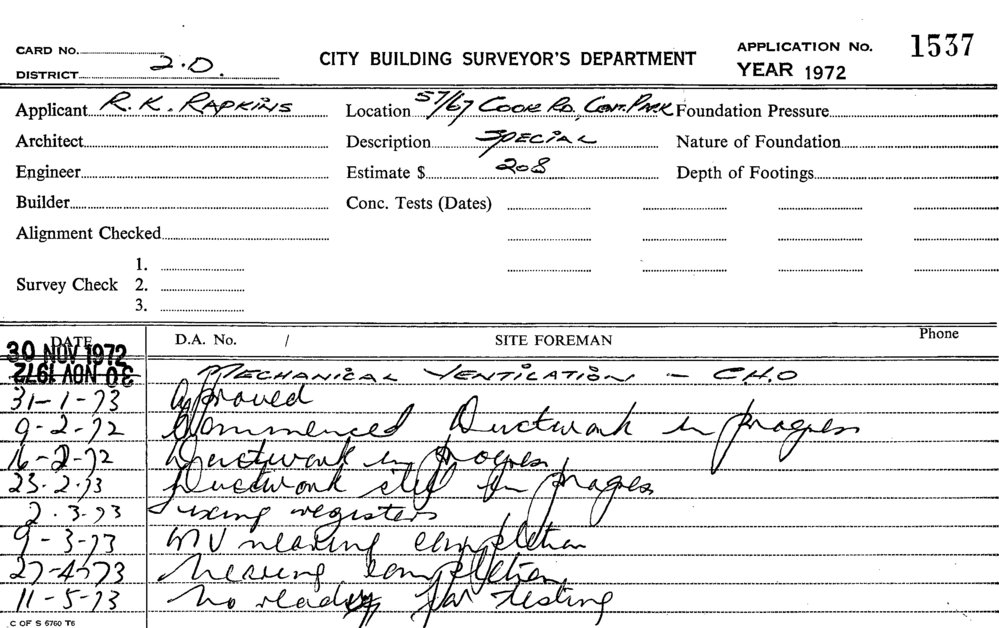 CARD No. CITY BUILDING SURVEYOR'S DEPARTMENT APPLICATION No. 1537
DISTRICT 2.D. YEAR 1972
Applicant R. K. RAPKINS Location 57/67 COOK RD, CENT. PARK Foundation Pressure
Architect Description SPECIAL Nature of Foundation
Engineer Estimate $ 208 Depth of Footings
Builder Conc. Tests (Dates)
Alignment Checked
1.
Survey Check 2.
3.
DATE D.A. No. / SITE FOREMAN Phone
30 NOV 1972
30 NOV 1972 MECHANICAL VENTILATION - C.H.O
31-1-73 Approved
9-2-72 Commenced Ductwork in progress
16-2-72 Ductwork in progress
23.2.73 Ductwork still in progress
2.3.73 Fixing registers
9-3-73 MV nearing completion
27-4-73 Nearing completion
11-5-73 No ready for testing
C OF S 6760 T6